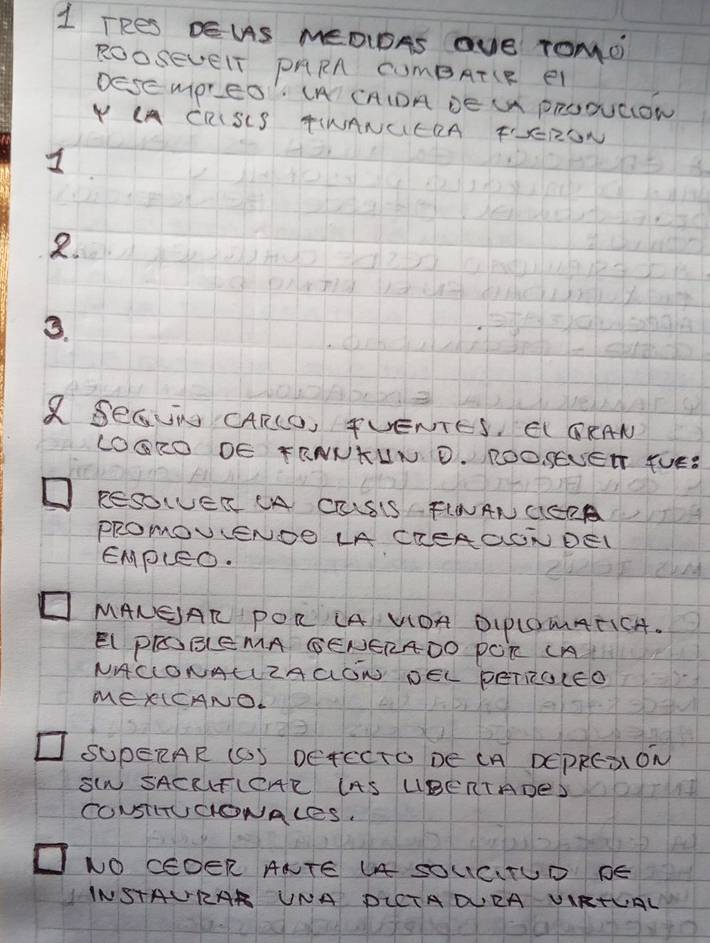 1 TRES DE LAS MEDIDAS QUE TOMÓ
ROOSEVELT PARA COMBATIR El
DESEMPLEO. LA CAIDA DE LA PRODUCIÓN
Y LA CRISIS FINANCIERA FUERON
1
2.
3.
2 SEGÚN CARLOS FUENTES. El GRAN
LOGRO DE FRANKLIN D. ROOSEVELT FUE:
RESOLVER LA CRISIS FINANCIERA
PROMOVIENDO LA CREACIÓN DEl
EMPLEO.
MANEJAR POR LA VIDA DIPLOMATICA.
El PROBLEMA GENERADO POR LA
NACIONALIZACIÓN DEL PETROLEO
MEXICANO.
SUPERAR LOS DEFECTO DE LA DEPRESIÓN
SIN SACRIFICAR LAS LIBERTADES
CONSTITUCIONALES.
NO CEDER ANTE LA SOLICITUD DE
INSTAURAR UNA DICTADURA VIRTUAL